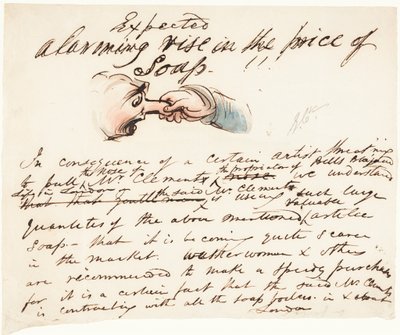 Expected
alarming rise in the price of
Soap. !!
In consequence of a certain artist threatning
the nose of the proprietor of
to pull Mr Clements nose Bells Life we understand
the said Mr Clements
that is using such large
valuable
quantities of the above mentioned artistic
Soap – that it is becoming quite scarce
in the market. washerwomen & others
are recommended to make a speedy purchase
for it is a certain fact that the said Mr Clements
is contracting with all the soap boilers in & about
London